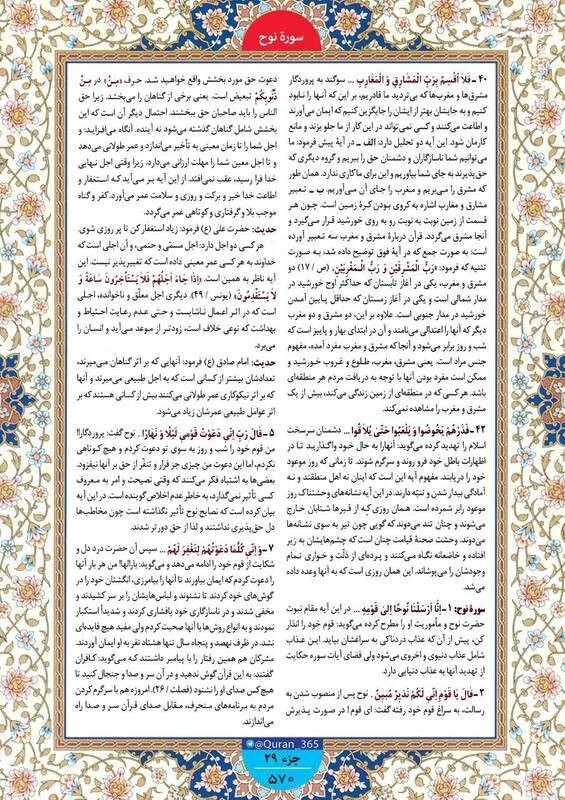 سورة نوح
۴۰ – فَلَا أُقْسِمُ بِرَبِّ الْمَشَارِقِ وَ الْمَغَارِبِ ... سوگند به پروردگار
مشرق‌ها و مغرب‌ها که بی‌تردید ما قادریم، بر این که آنها را نابود
کنیم و به جایشان بهتر از ایشان را جایگزین کنیم که ایمان می‌آورند
و اطاعت می‌کنند و کسی نمی‌تواند در این کار از ما جلو بزند و مانع
کارمان شود. این آیه دو تحلیل دارد: الف ـ در آیهٔ پیش فرمود: ما
می‌توانیم شما ناسازگاران و دشمنان حق را ببریم و گروه دیگری که
حق‌پذیرند به جای شما بیاوریم و این برای ما کاری ندارد. همان طور
که مشرق را می‌بریم و مغرب را جای آن می‌آوریم. ب ـ تعبیر
مشارق و مغارب اشاره به کروی بودن کرهٔ زمین است. چون هر
قسمت از زمین نوبت به نوبت رو به روی خورشید قرار می‌گیرد و
آنجا مشرق می‌گردد. قرآن دربارهٔ مشرق و مغرب سه تعبیر آورده
است: به صورت جمع که در آیهٔ فوق توضیح داده شد، به صورت
تثنیه که فرموده: «رَبُّ الْمَشْرِقَيْنِ وَ رَبُّ الْمَغْرِبَيْنِ» (ص / ۱۷) دو
مشرق و مغرب، یکی در آغاز تابستان که حداکثر اوج خورشید در
مدار شمالی است و یکی در آغاز زمستان که حداقل پایین آمدن
خورشید در مدار جنوبی است. علاوه بر این، دو مشرق و دو مغرب
دیگر که آنها را اعتدالی می‌نامند و آن در ابتدای بهار و پاییز است که
شب و روز برابر می‌شود و آنجا که مشرق و مغرب مفرد آمده، مفهوم
جنس مراد است. یعنی مشرق، مغرب، طلوع و غروب خورشید و
ممکن است مفرد بودن آنها با توجه به دریافت مردم هر منطقه‌ای
باشد. هر کسی که در منطقه‌ای از زمین زندگی می‌کند، بیش از یک
مشرق و مغرب را مشاهده نمی‌کند.
۴۲ – فَذَرْهُمْ يَخُوضُوا وَ يَلْعَبُوا حَتَّىٰ يُلَاقُوا ... دشمنان سرسخت
اسلام را تهدید کرده می‌گوید: آنهارا به حال خود واگذارید تا در
اظهارات باطل خود فرو روند و سرگرم شوند. تا زمانی که روز موعود
خود را دریابند. مفهوم آیه این است که اینان نه اهل منطقند و نه
آمادگی بیدار شدن و تنبّه دارند. در این آیه نشانه‌های وحشتناک روز
موعود رابر شمرده است. همان روزی که از قبرها شتابان خارج
می‌شوند و چنان تند می‌دوند که گویی چون تیر به سوی نشانه‌ها
می‌دوند. وحشت صحنهٔ قیامت چنان است که چشم‌هایشان به زیر
افتاده و خاضعانه نگاه می‌کنند و پرده‌ای از ذلّت و خواری تمام
وجودشان را می‌پوشاند. این همان روزی است که به آنها وعده داده
می‌شد.
سورهٔ نوح: ۱ – إِنَّا أَرْسَلْنَا نُوحًا إِلَىٰ قَوْمِهِ ... در این آیه مقام نبوت
حضرت نوح و مأموریت او را مطرح کرده می‌گوید: قوم خود را انذار
کن، پیش از آن که عذاب دردناکی به سراغشان بیاید. این عذاب
شامل عذاب دنیوی و اخروی می‌شود ولی فضای آیات سوره حکایت
از تهدید آنها به عذاب دنیایی دارد.
۲ – قَالَ يَا قَوْمِ إِنِّي لَكُمْ نَذِيرٌ مُبِينٌ . نوح پس از منصوب شدن به
رسالت، به سراغ قوم خود رفته گفت: ای قوم! در صورت پذیرش
دعوت حق مورد بخشش واقع خواهید شد. حرف «مِنْ» در مِنْ
ذُنُوبِكُمْ تبعیض است. یعنی برخی از گناهان را می‌بخشد. زیرا حق
الناس را باید صاحبان حق ببخشند. احتمال دیگر آن است که این
بخشش شامل گناهان گذشته می‌شود نه آینده. آنگاه می‌افزاید: و
اجل شما را تا زمان معینی به تأخیر می‌اندازد و عمر طولانی می‌دهد
و تا اجل معین شما را مهلت ارزانی می‌دارد. زیرا وقتی اجل نهایی
خدا فرا رسید، عقب نمی‌افتد. از این آیه بر می‌آید که استغفار و
اطاعت خدا خیر و برکت و روزی و سلامت عمر می‌آورد. کفر و گناه
موجب بلا و گرفتاری و کوتاهی عمر می‌گردد.
حدیث: حضرت علی (ع) فرمود: زیاد استغفار کن تا پر روزی شوی.
هر کسی دو اجل دارد: اجل مسمّی و حتمی، و آن اجلی است که
خداوند به هر کسی عمر معینی داده است که تغییرپذیر نیست. این
آیه ناظر به همین است. «إِذَا جَاءَ أَجَلُهُمْ فَلَا يَسْتَأْخِرُونَ سَاعَةً وَ
لَا يَسْتَقْدِمُونَ» (یونس / ۴۹). دیگری اجل معلّق و ناخوانده، اجلی
است که در اثر اعمال ناشایست و حتی عدم رعایت احتیاط و
بهداشت که نوعی خلاف است، زودتر از موعد می‌آید و انسان را
می‌برد.
حدیث: امام صادق (ع) فرمود: آنهایی که بر اثر گناهان می‌میرند،
تعدادشان بیشتر از کسانی است که به اجل طبیعی می‌میرند و آنها
که بر اثر نیکوکاری عمر طولانی می‌کنند بیش از کسانی هستند که بر
اثر عوامل طبیعی عمرشان زیاد می‌شود.
۵ – قَالَ رَبِّ إِنِّي دَعَوْتُ قَوْمِي لَيْلًا وَ نَهَارًا . نوح گفت: پروردگارا!
من قوم خود را شب و روز به سوی تو دعوت کردم و هیچ کوتاهی
نکردم، اما این دعوت من چیزی جز فرار و تنفّر از حق بر آنها نیفزود.
بعضی‌ها به اشتباه فکر می‌کنند که وقتی نصیحت و امر به معروف
کسی تأثیر نمی‌گذارد، به خاطر عدم اخلاص گوینده است. در این آیه
بیان کرده است که نصایح نوح تأثیر نگذاشته است چون مخاطب‌ها
دل حق‌پذیری نداشتند و لذا از حق دورتر شدند.
۷ – وَ إِنِّي كُلَّمَا دَعَوْتُهُمْ لِتَغْفِرَ لَهُمْ ... سپس آن حضرت درد دل و
شکایت از قوم خود را ادامه می‌دهد و می‌گوید: بارالها! من هر بار آنها
را دعوت کردم که ایمان بیاورند تا آنها را بیامرزی، انگشتان خود را در
گوش‌های خود کردند تا نشنوند و لباس‌هایشان را بر سر کشیدند و
مخفی شدند و در ناسازگاری خود پافشاری کردند و شدیداً استکبار
نمودند و به انواع روش‌ها با آنها صحبت کردم ولی مفید هیچ فایده‌ای
نشد. در ظرف نهصد و پنجاه سال تنها هشتاد نفر به او ایمان آوردند.
مشرکان هم همین رفتار را با پیامبر داشتند که می‌گوید: کافران
گفتند: به این قرآن گوش ندهید و در آن سر و صدا و جنجال کنید تا
هیچ کس صدای او را نشنود (فصلت / ۲۶). امروزه هم با سرگرم کردن
مردم به برنامه‌های منحرف، مقابل صدای قرآن سر و صدا راه
می‌اندازند.
@Quran_365
جزء ۲۹
۵۷۰